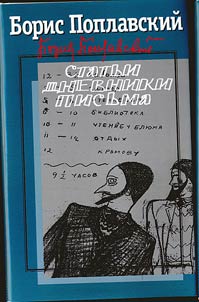 Борис Поплавский
Борис Поплавский
СТАТЬИ
ДНЕВНИКИ
ПИСЬМА
12 -
8 - 10 БИБЛИОТЕКА
10 - 11 ЧТЕНИЕ БЛЮМА
11 - 12 ОТДЫХ
12 К РАМОВУ
9 1/2 ЧАСОВ